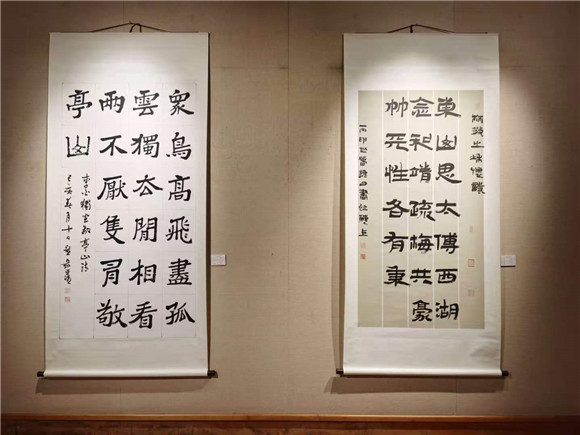 衆鳥高飛盡孤
雲獨去閒相看
兩不厭隻有敬
亭山
李白獨坐敬亭山诗
東山思太傅西湖
念和靖疏梅共豪
竹天性各有秉